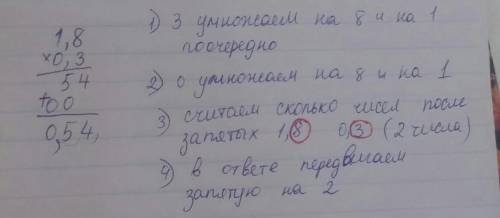 1,8
×0,3
54
+00
0,54,
1) 3 умножаем на 8 и на 1
поочередно
2) 0 умножаем на 8 и на 1
3) считаем сколько чисел после
запятых 1,8 0,3 (2 числа)
4) в ответе передвигаем
запятую на 2